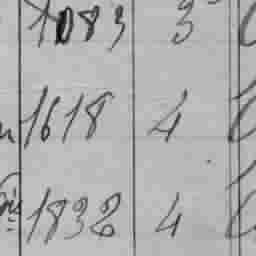 1083 3
1618 4
1832 4